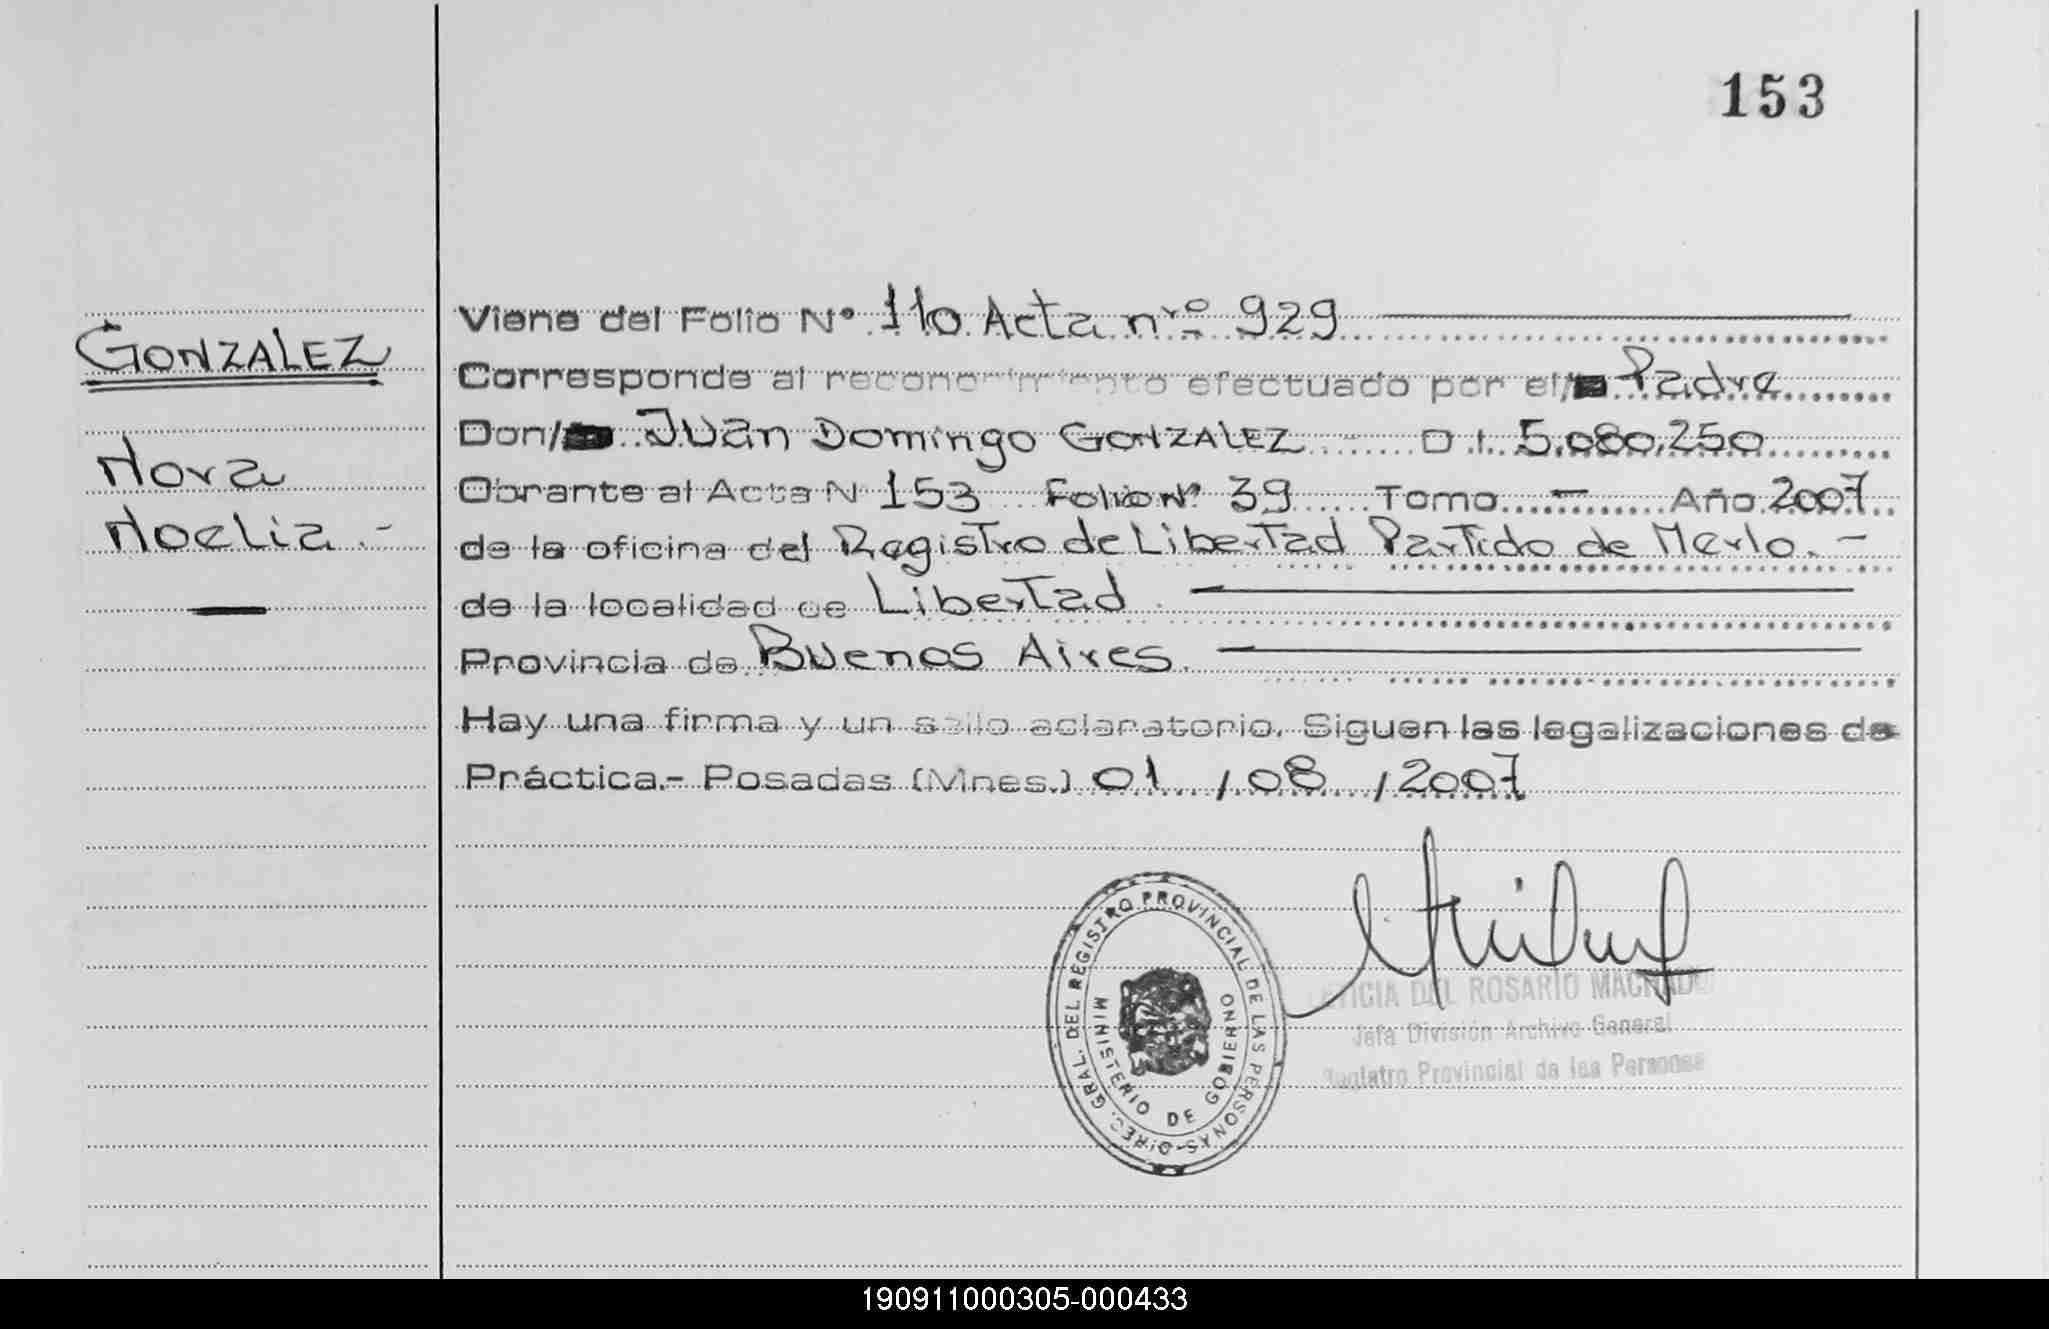 153
GONZALEZ
Nora
Noelia.-
Viene del Folio Nº 110 Acta nrº 929
Corresponde al reconocimiento efectuado por el/ Padre
Don/ Juan Domingo GONZALEZ D.I. 5.080.250
Obrante al Acta N 153 Folio Nº 39 Tomo - Año 2007
de la oficina del Registro de Libertad Partido de Merlo.-
de la localidad de Libertad.
Provincia de Buenos Aires.
Hay una firma y un sello aclaratorio. Siguen las legalizaciones de
Práctica.- Posadas (Mnes.) 01 / 08 / 2007
DIREC. GRAL. DEL REGISTRO PROVINCIAL DE LAS PERSONAS-
MINISTERIO DE GOBIERNO
LETICIA DEL ROSARIO MACHADO
Jefa División Archivo General
Registro Provincial de las Personas
190911000305-000433